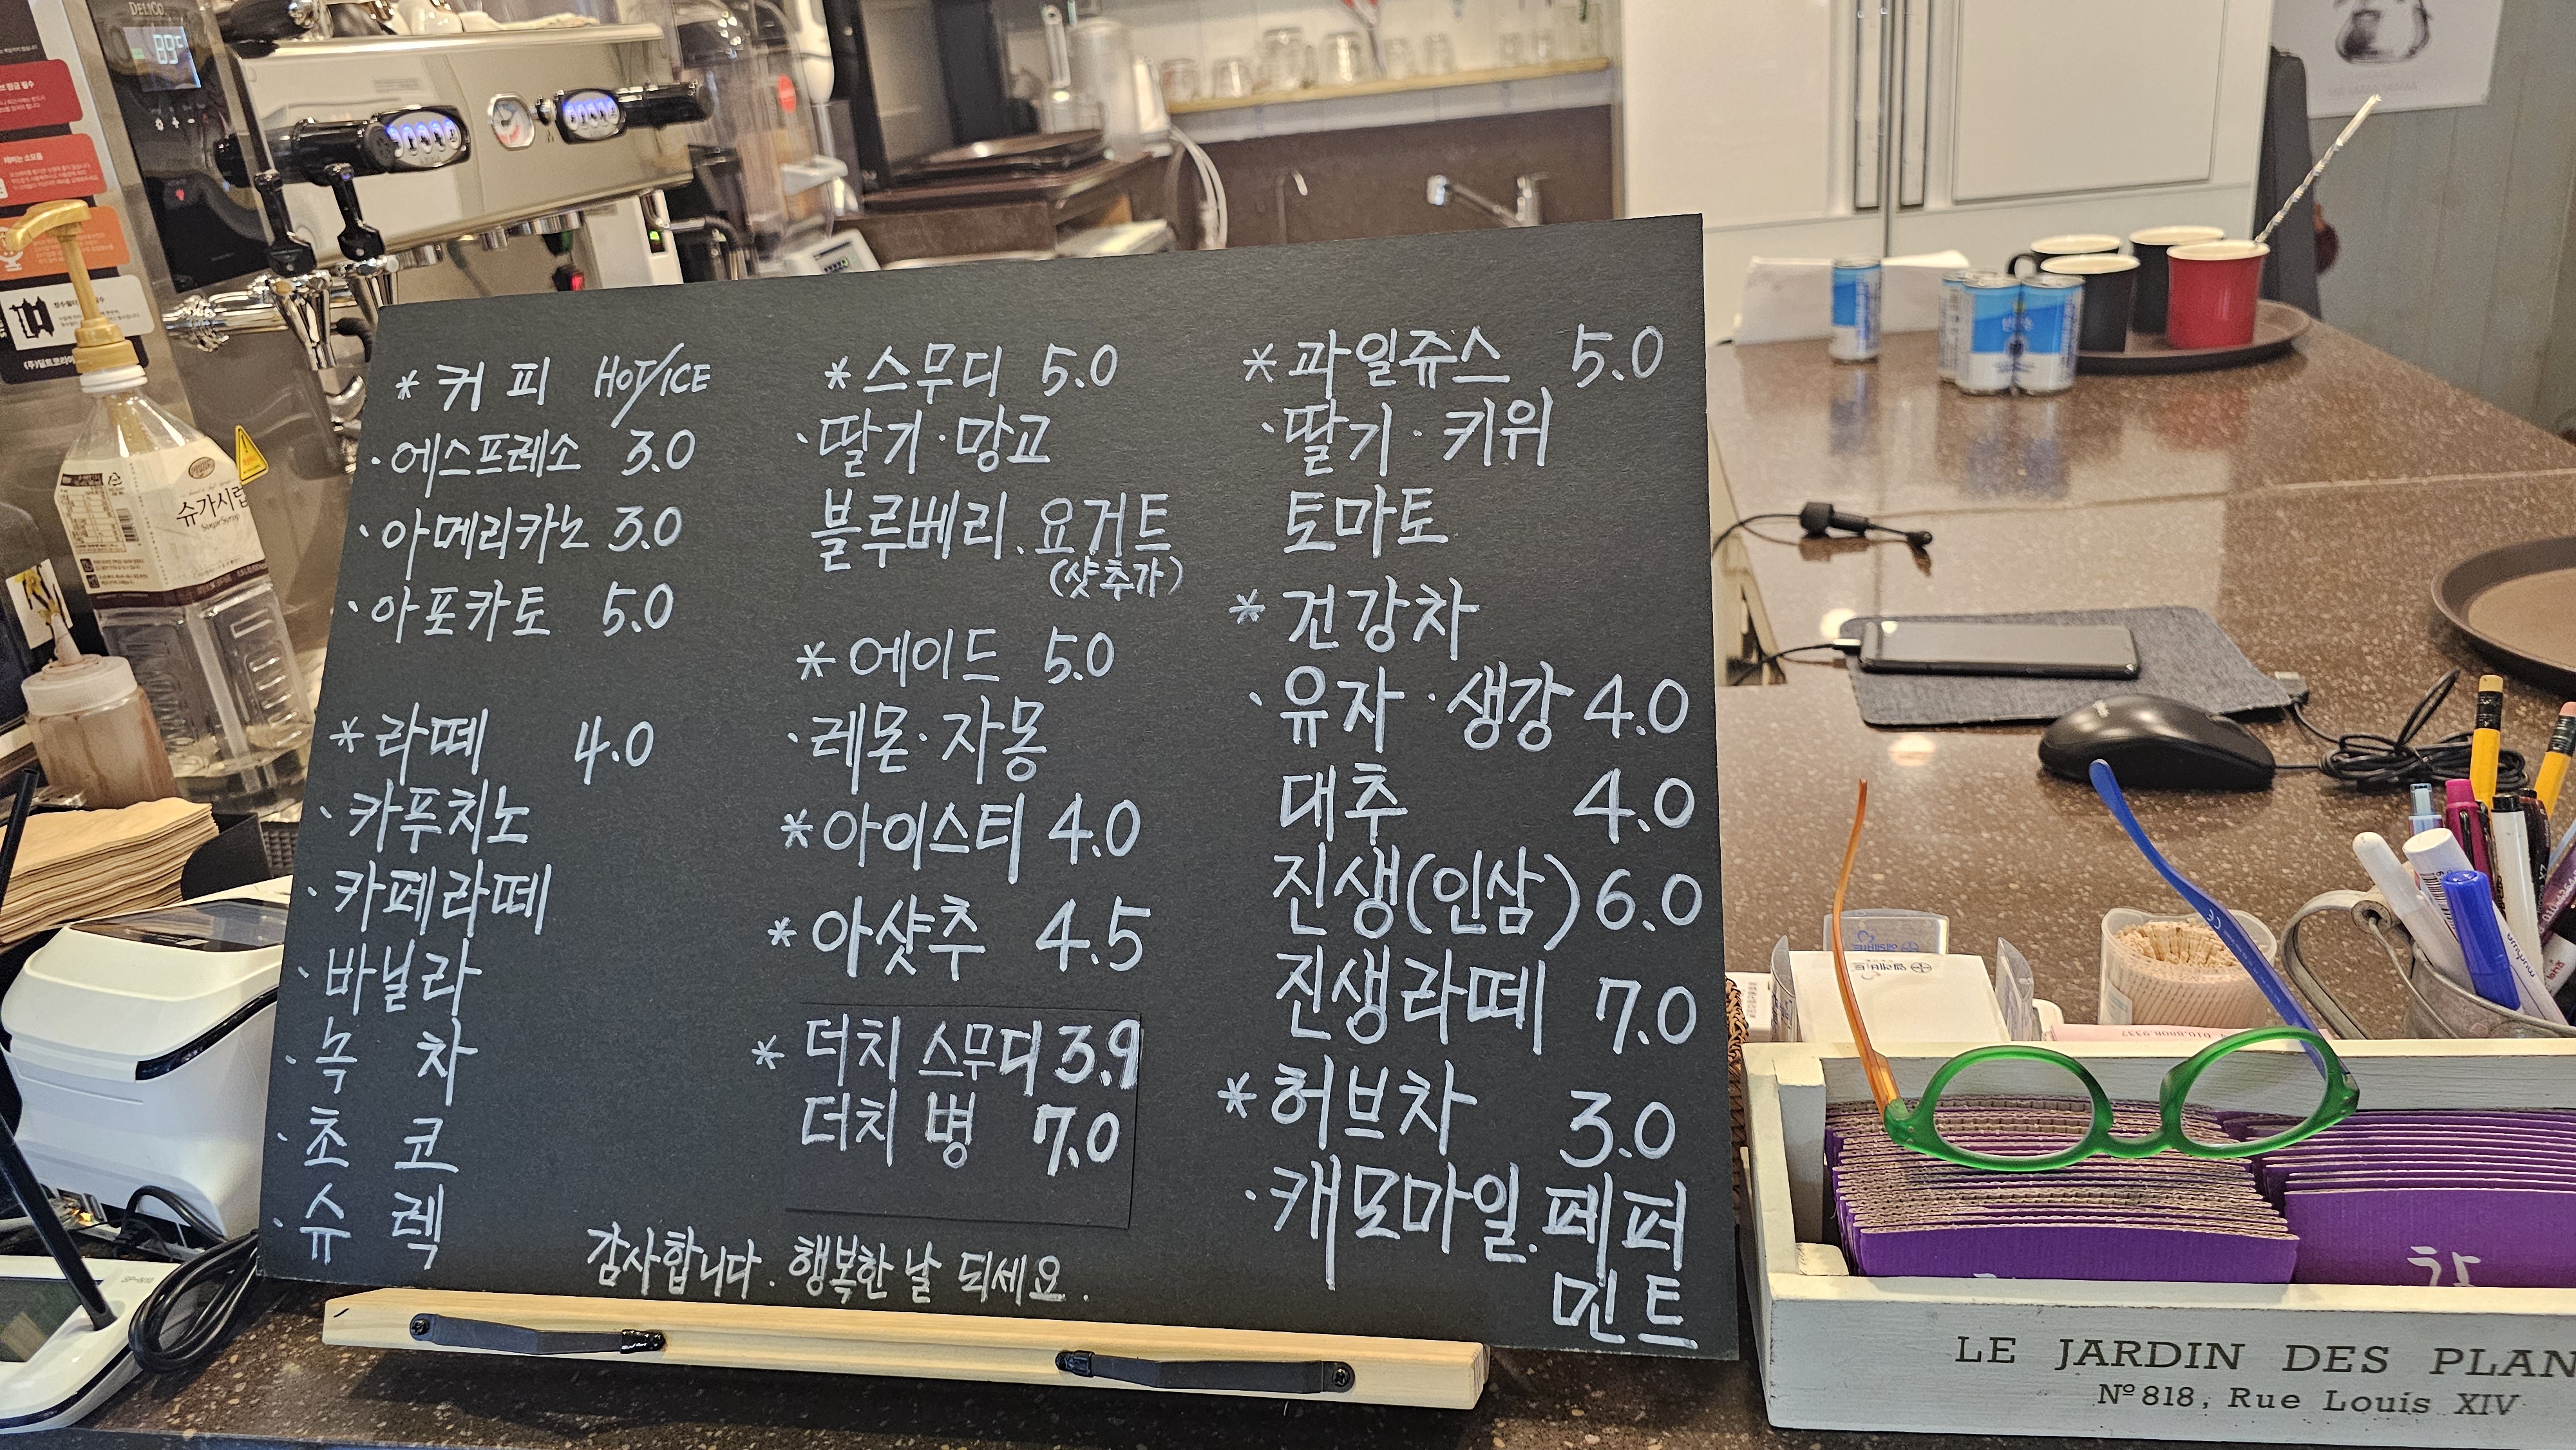 * 커피 HOT/ICE
· 에스프레소 3.0
· 아메리카노 3.0
· 아포카토 5.0
* 라떼 4.0
· 카푸치노
· 카페라떼
· 바닐라
· 녹차
· 초코
· 슈렉
* 스무디 5.0
· 딸기 · 망고
블루베리 . 요거트
(샷추가)
* 에이드 5.0
· 레몬 · 자몽
* 아이스티 4.0
* 아샷추 4.5
* 더치 스무디 3.9
더치 병 7.0
* 과일쥬스 5.0
· 딸기 · 키위
토마토
* 건강차
· 유자 · 생강 4.0
대추 4.0
진생(인삼) 6.0
진생라떼 7.0
* 허브차 3.0
· 캐모마일 . 페퍼
민트
감사합니다 . 행복한 날 되세요 .
DELICO.
89℃
슈가시럽
Sugar Syrup
LE JARDIN DES PLAN
Nº 818, Rue Louis XIV